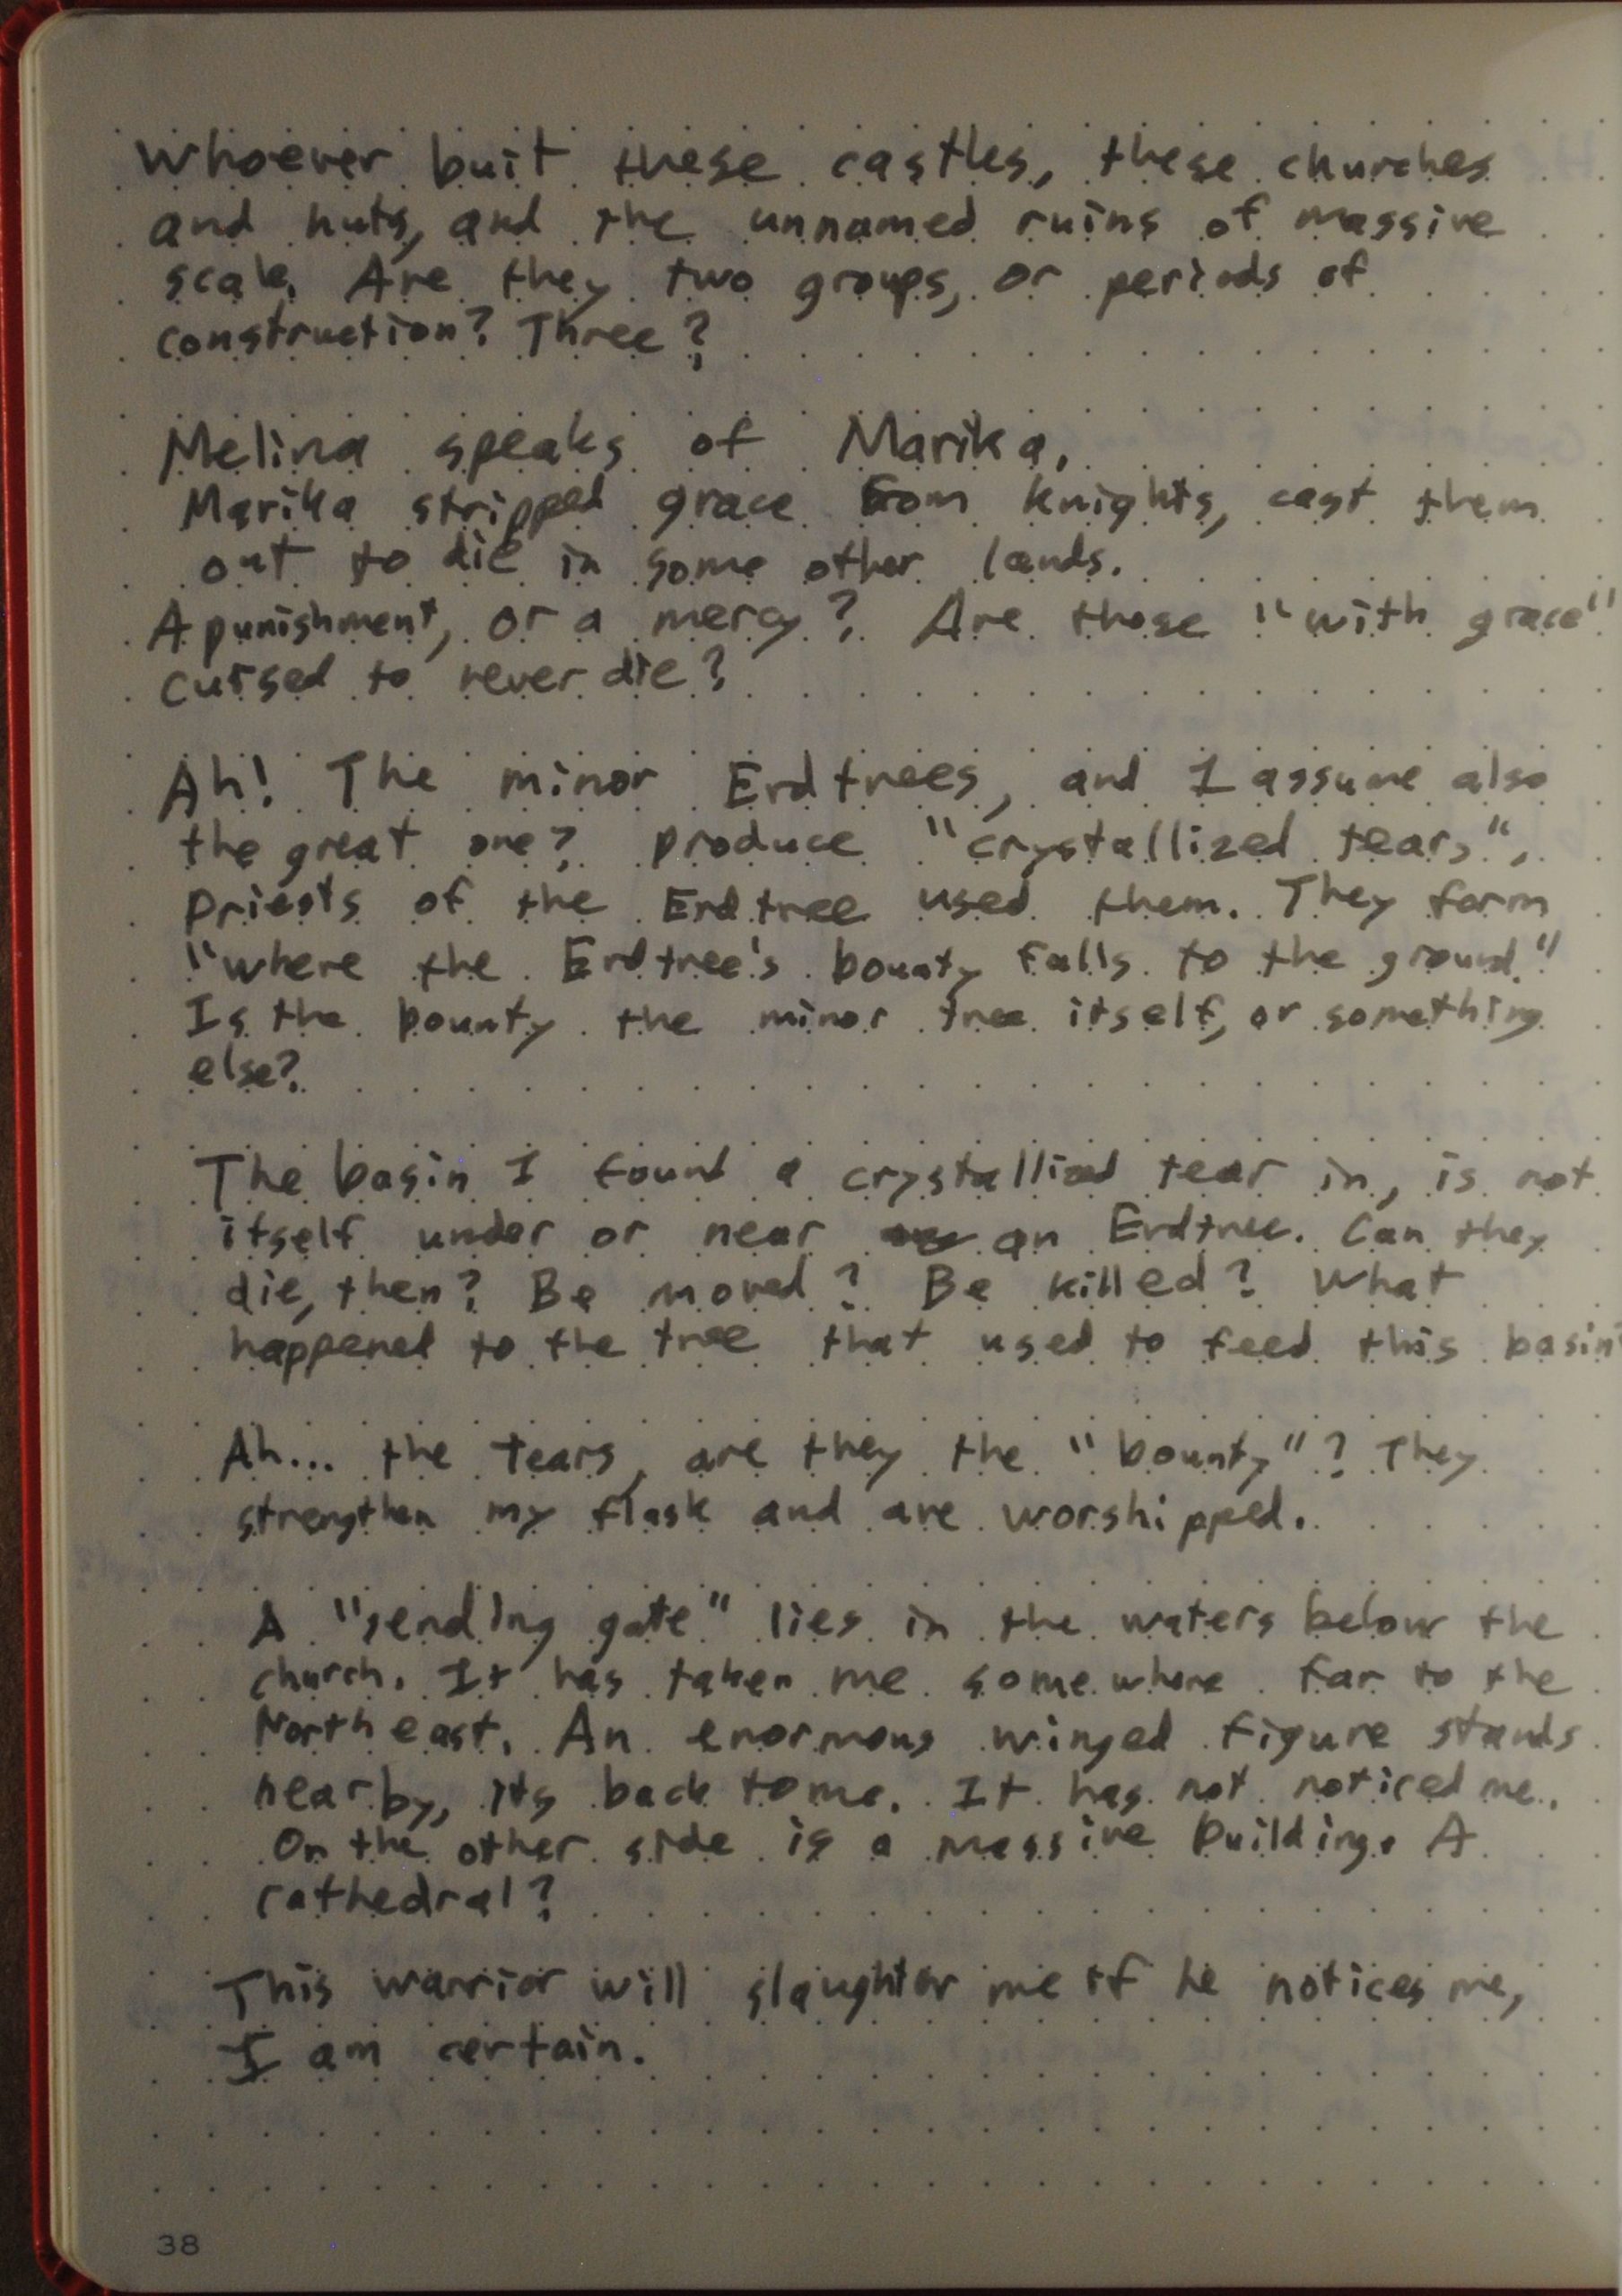 Whoever buit these castles, these churches
and huts, and the unnamed ruins of massive
scale. Are they two groups, or periods of
construction? Three?
Melina speaks of Marika.
Marika stripped grace from knights, cast them
out to die in some other lands.
A punishment, or a mercy? Are those "with grace"
cursed to never die?
Ah! The minor Erdtrees, and I assume also
the great one? produce "crystallized tears",
Priests of the Erdtree used them. They form
"where the Erdtree's bounty falls to the ground."
Is the bounty the minor tree itself, or something
else?
The basin I found a crystallized tear in, is not
itself under or near an Erdtree. Can they
die, then? Be moved? Be killed? What
happened to the tree that used to feed this basin
Ah... the tears, are they the "bounty"? They
strengthen my flask and are worshipped.
A "sending gate" lies in the waters below the
church. It has taken me somewhere far to the
Northeast. An enormous winged figure stands
nearby, its back to me. It has not noticed me.
On the other side is a massive building. A
cathedral?
This warrior will slaughter me if he notices me,
I am certain.
38